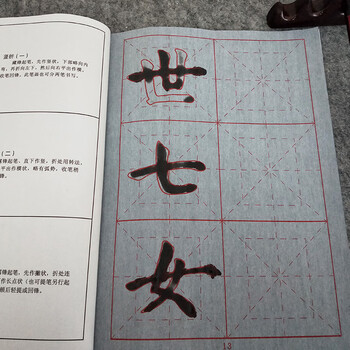 折（一）
锋起笔，先作竖状，下部略向内
，再折向左下，然后向右平出作横，
收笔回锋，此笔画也可分两笔书写。
（二）
锋起笔，直下作竖，折处用转法，
平出作横状，略有弧势，收笔稍
锋。
锋起笔，先作撇状，折处连
作长点状（也可提笔另行起
顿后轻提或回锋。
世
七
女
13